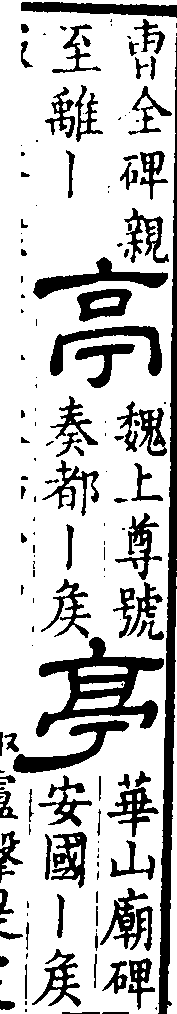 曹全碑親
至離丨
亭
魏上尊號
奏都丨矦
亭
華山廟碑
安國丨矦